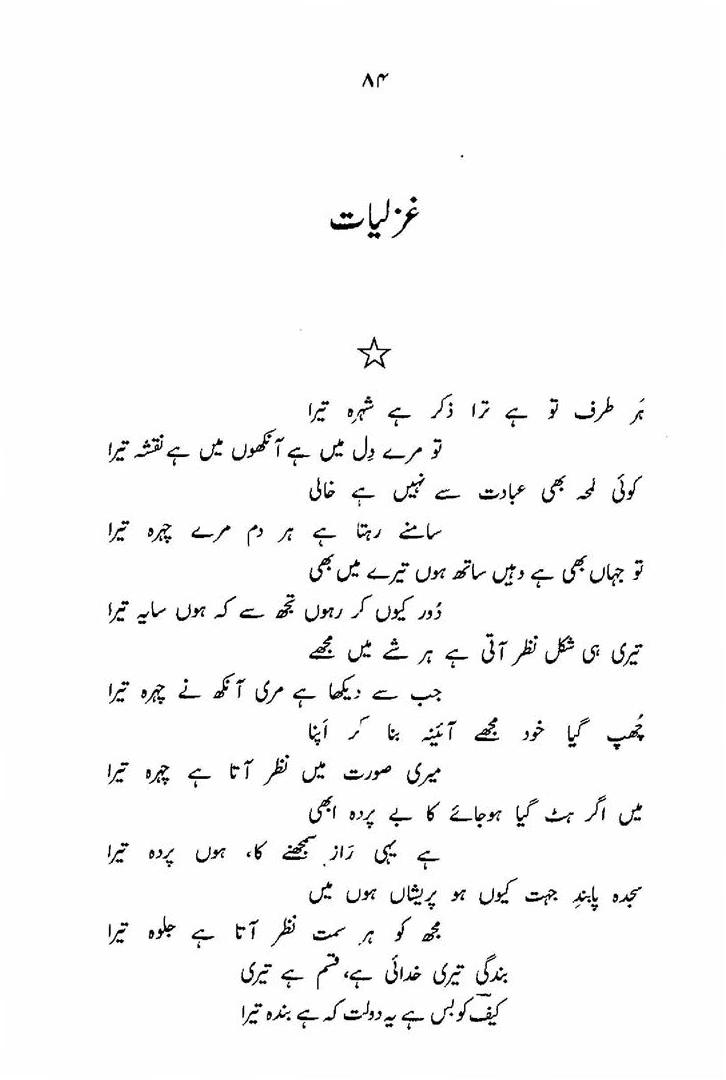 ۸۴
غزلیات
ہَر طرف تو ہے ترا ذکر ہے شہرہ تیرا
تو مرے دِل میں ہے آنکھوں میں ہے نقشہ تیرا
کوئی لمحہ بھی عبادت سے نہیں ہے خالی
سامنے رہتا ہے ہر دم مرے چہرہ تیرا
تو جہاں بھی ہے وہیں ساتھ ہوں تیرے میں بھی
دُور کیوں کر رہوں تجھ سے کہ ہوں سایہ تیرا
تیری ہی شکل نظر آتی ہے ہر شے میں مجھے
جب سے دیکھا ہے مری آنکھ نے چہرہ تیرا
چُھپ گیا خود مجھے آئینہ بنا کر اَپنا
میری صورت میں نظر آتا ہے چہرہ تیرا
میں اگر ہٹ گیا ہوجائے گا بے پردہ ابھی
ہے یہی رَاز سمجھنے کا، ہوں پردہ تیرا
سجدہ پابندِ جہت کیوں ہو پریشاں ہوں میں
مجھ کو ہر سمت نظر آتا ہے جلوہ تیرا
بندگی تیری خدائی ہے، قسم ہے تیری
کیفؔ کو بس ہے یہ دولت کہ ہے بندہ تیرا